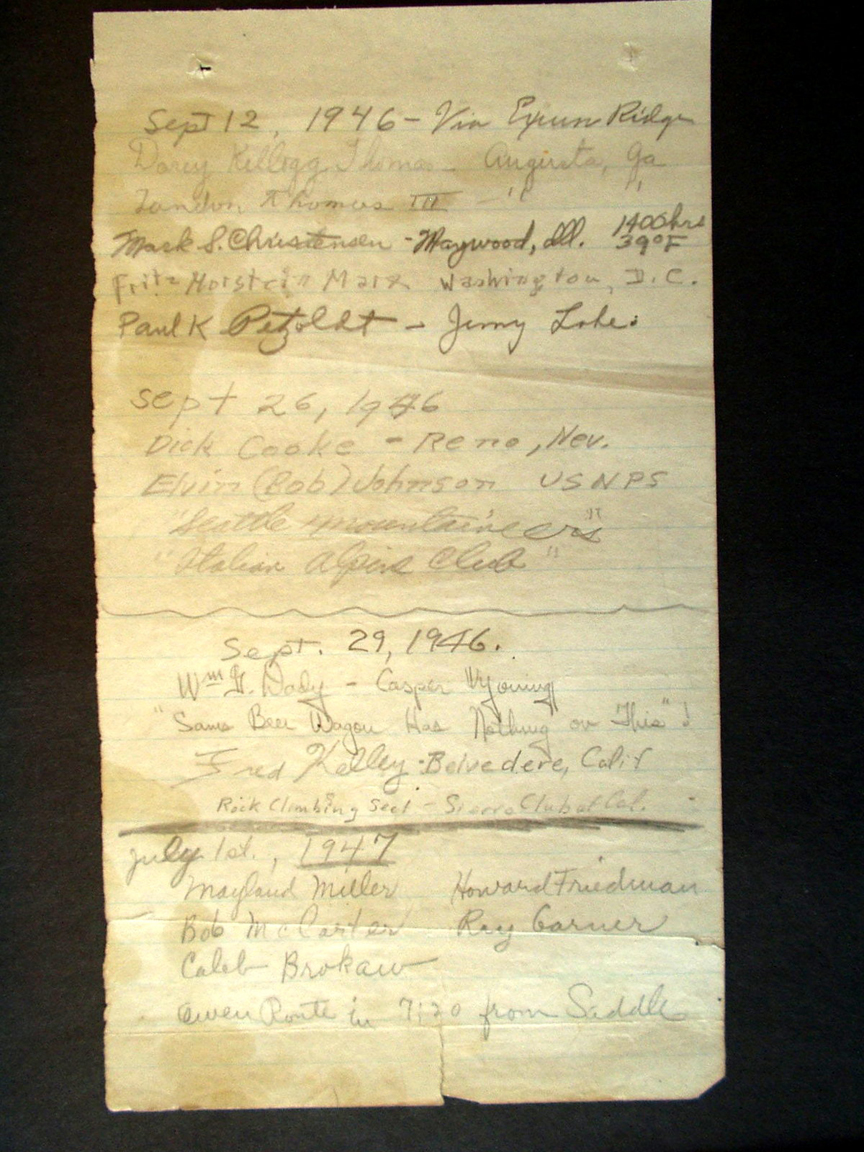 Sept 12, 1946 - Via Exum Ridge
Darcy Kellogg Thomas - Augusta, Ga
Landon Thomas III - " "
Mack S. Christensen - Maywood, Ill. 1400hrs 39°F
Fritz Morstein Marx Washington, D.C.
Paul K Petzoldt - Jenny Lake.
Sept 26, 1946
Dick Cooke - Reno, Nev.
Elvin (Bob) Johnson USNPS
"Seattle mountaineers"
"Italian Alpine Club"
Sept. 29, 1946.
Wm Dady - Casper Wyoming
"Sams Beer Wagon Has Nothing on This"!
Fred Kelley - Belvedere, Calif
Rock Climbing Sect - Sierra Club of Cal.
July 1st., 1947
Mayland Miller Howard Friedman
Bob McCarter Ray Garner
Caleb Brokaw
Owen Route in 7:20 from Saddle